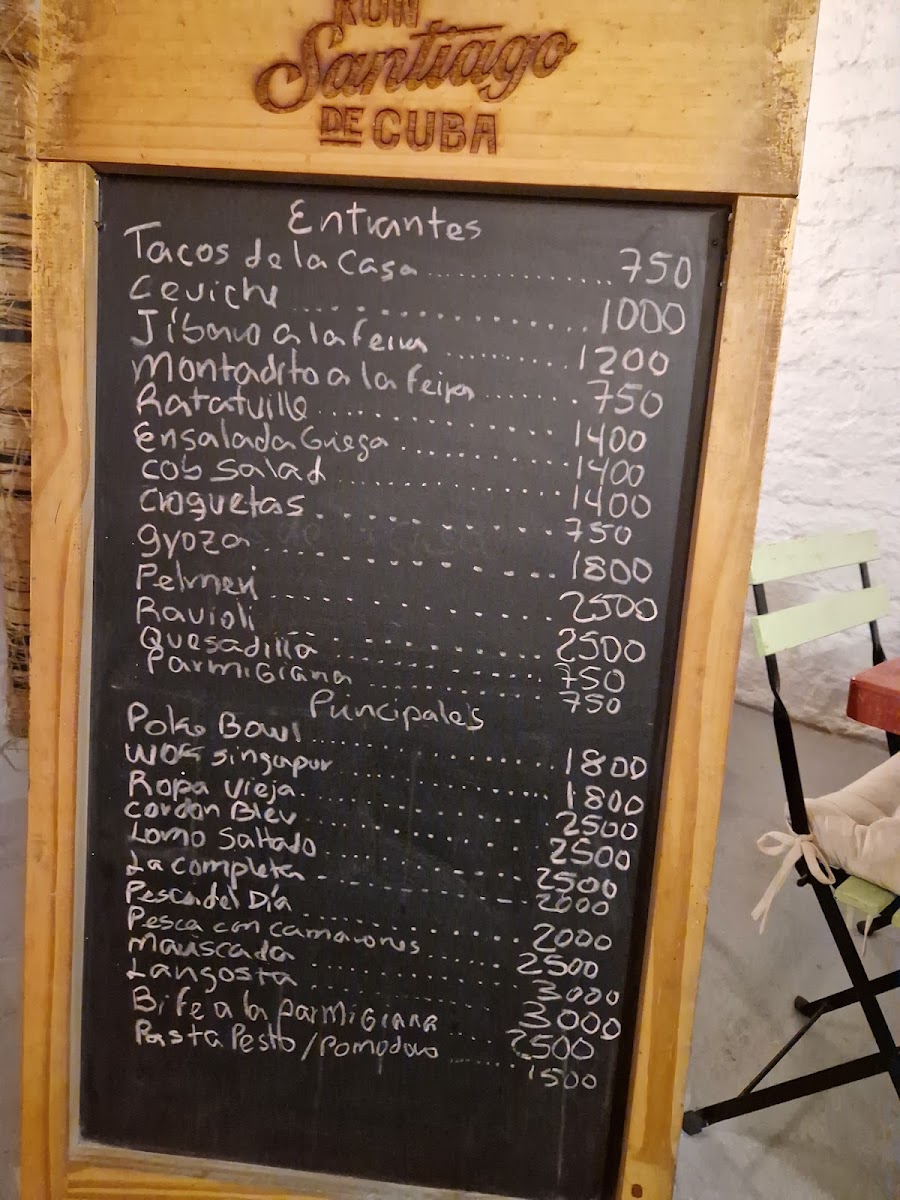 RON
Santiago
DE CUBA
Entrantes
Tacos de la Casa ................ 750
Ceviche ................ 1000
Jíbaro a la feira ............ 1200
Montadito a la feira ....... 750
Ratatville ............... 1400
Ensalada Griega ............ 1400
Cob Salad ............... 1400
Croquetas ............... 750
gyoza ............... 1800
Pelmeni ............... 2500
Ravioli ............... 2500
Quesadilla ............... 750
Parmigiana ............... 750
Principales
Poke Bowl ............... 1800
Wok Singapur ............... 1800
Ropa Vieja ............... 2500
Cordon Blev ............... 2500
Lomo Saltado ............... 2500
La Completa ............... 2000
Pesca del Día ............... 2000
Pesca con camarones ........ 2500
Mariscada ............... 3000
Langosta ............... 3000
Bife a la Parmigiana ...... 2500
Pasta Pesto/Pomodoro ........ 1500